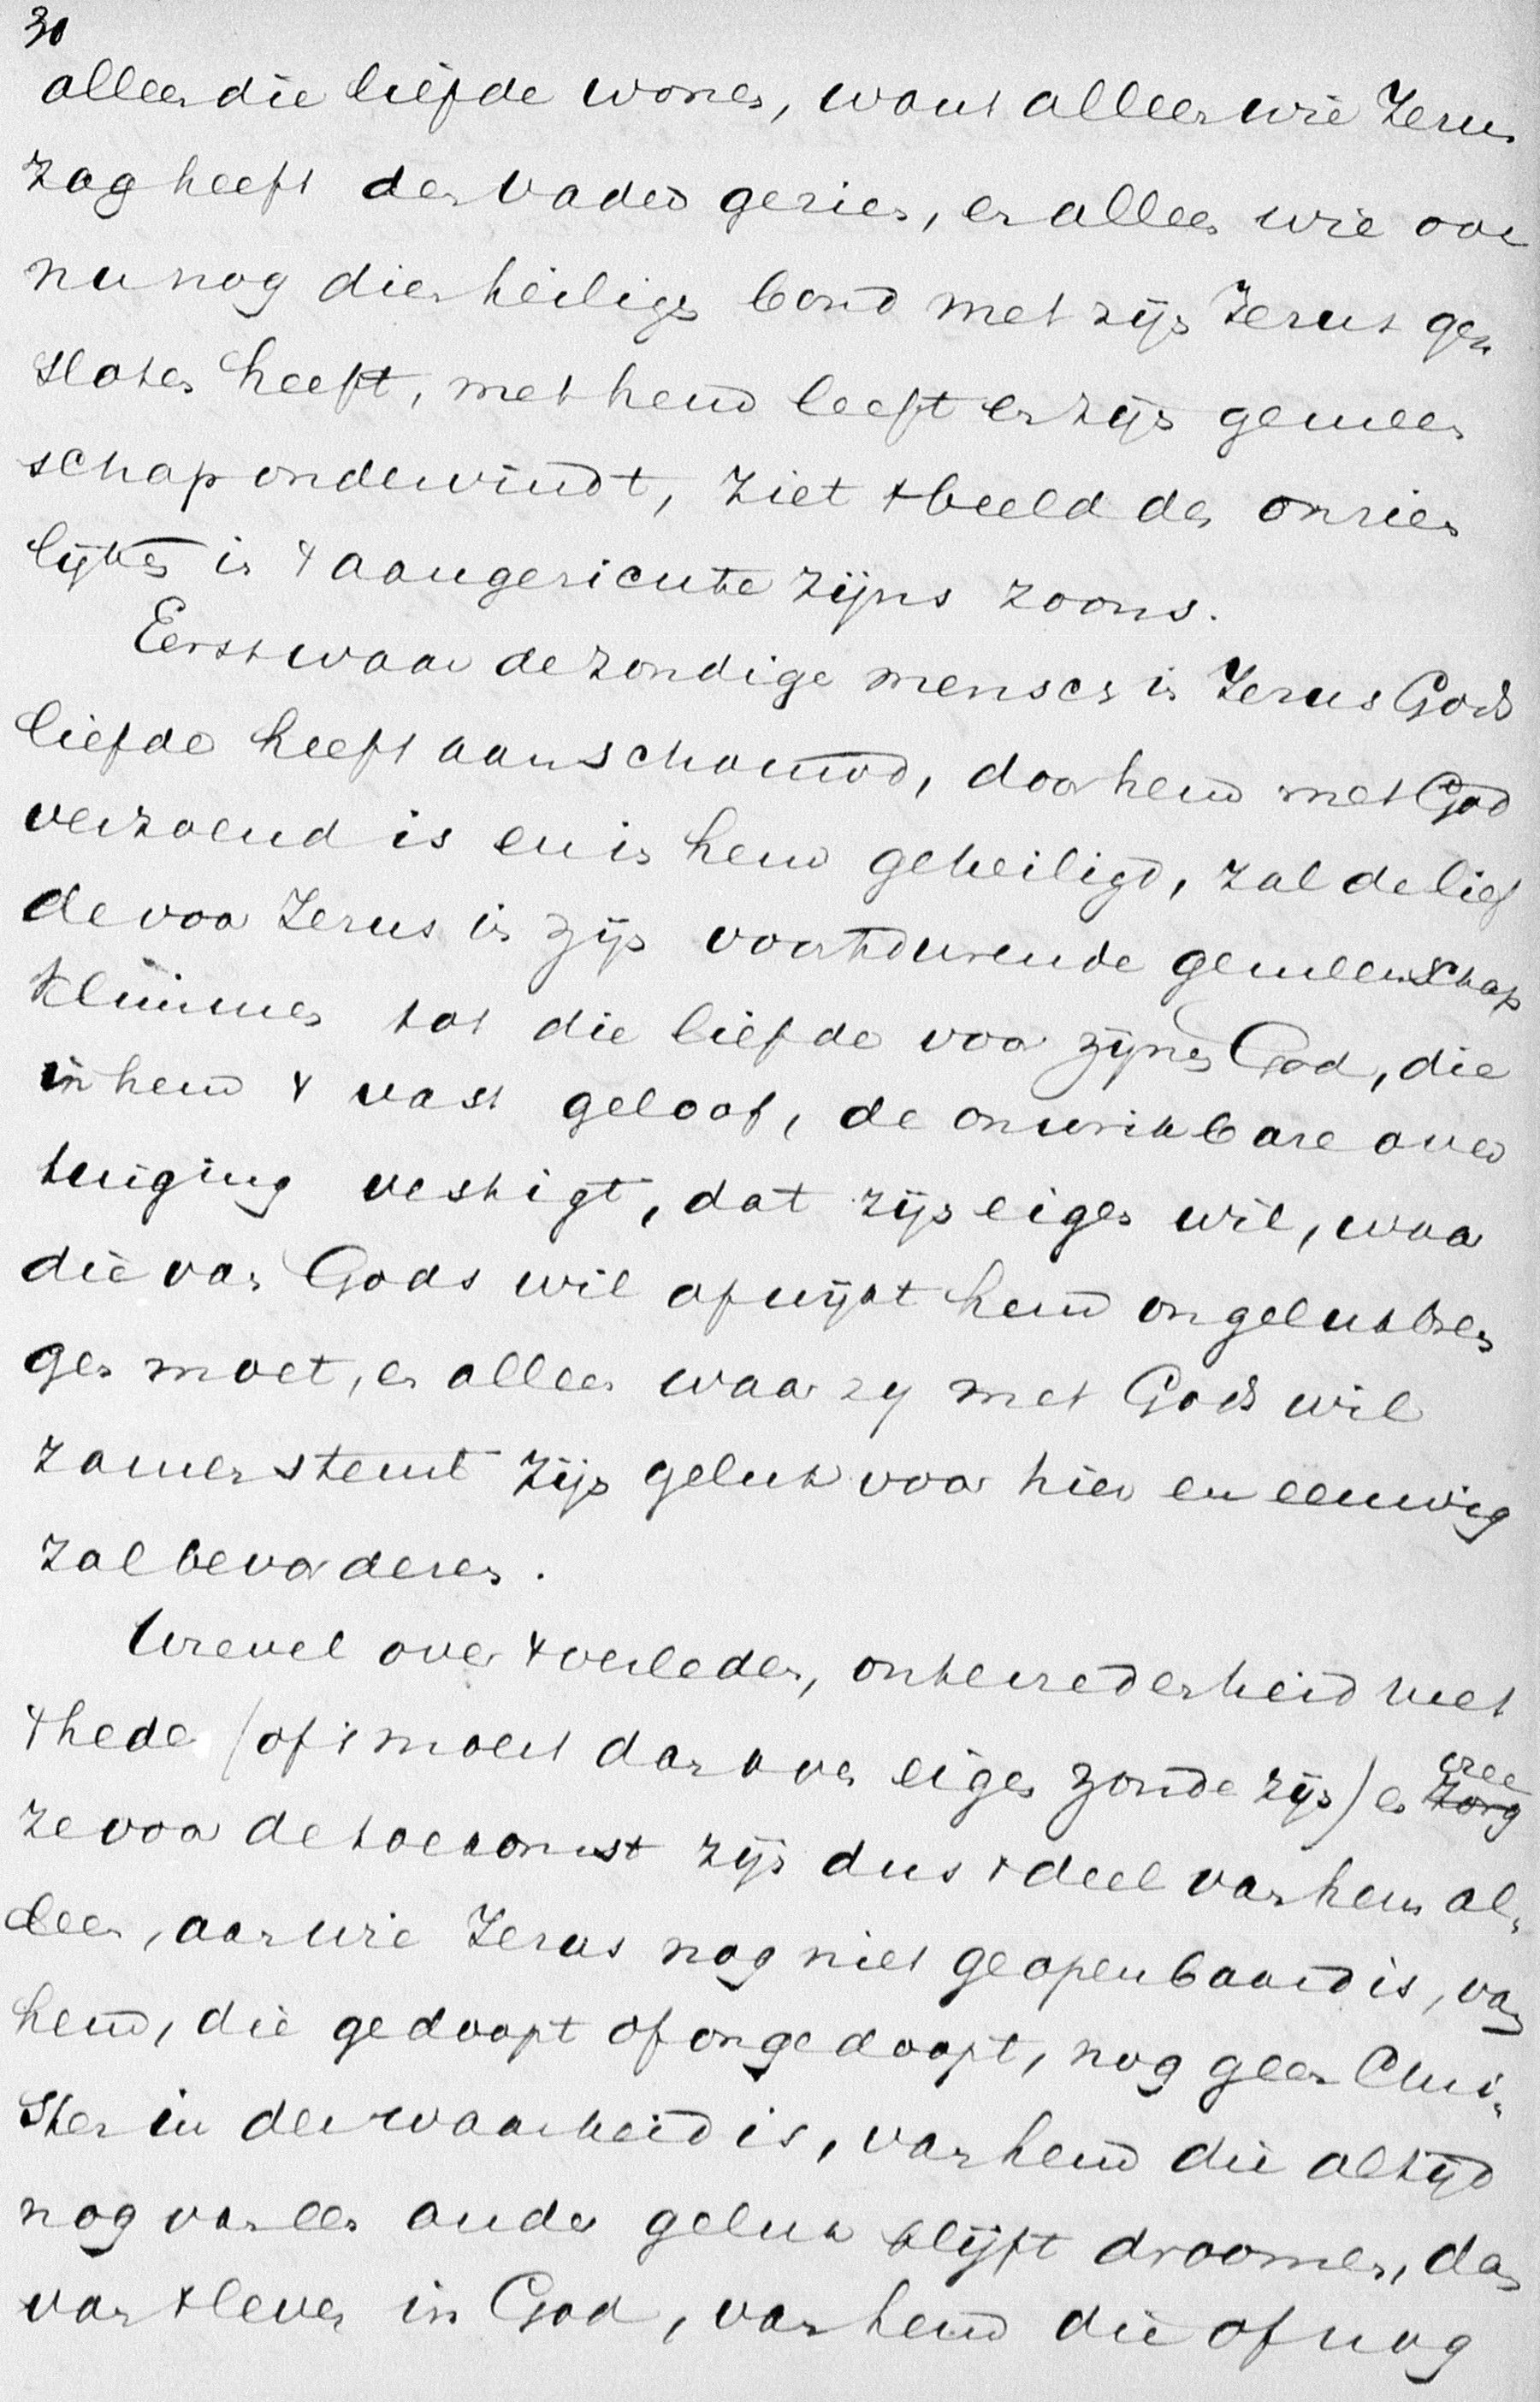 30
alleen die liefde wonen, want alleen wie Jezus
zag heeft den vader gezien, en alleen wie ook
nu nog dien heiligen bond met zijn Jezus ge„
sloten heeft, met hem leeft en zijn gemeen
schap ondervindt, ziet 't beeld des onzien
lijken in 't aangezichte zijns zoons.
Eerst waar de zondige mensch in Jezus Gods
liefde heeft aanschouwd, door hem met God
verzoend is en in hem geheiligd, zal de lief
de voor Jezus in zijn voortdurende gemeenschap
klimmen tot die liefde voor zijnen God, die
in hem 't vast geloof, de onwrikbare over
tuiging vestigt, dat zijn eigen wil, waar
die van Gods wil afwijkt hem ongeluk bren
gen moet, en alleen waar zij met Gods wil
zamenstemt zijn geluk voor hier en eeuwig
zal bevorderen.
Wrevel over 't verleden, ontevredenheid met
't heden (of 't moest dan over eigen zonde zijn) en vree
ze voor de toekomst zijn dus 't deel van hem al„
leen, aan wie Jezus nog niet geopenbaard is, van
hem, die gedoopt of ongedoopt, nog geen Chri„
sten in der waarheid is, van hem die altijd
nog van een ander geluk blijft droomen, dan
van 't leven in God, van hem die of nog